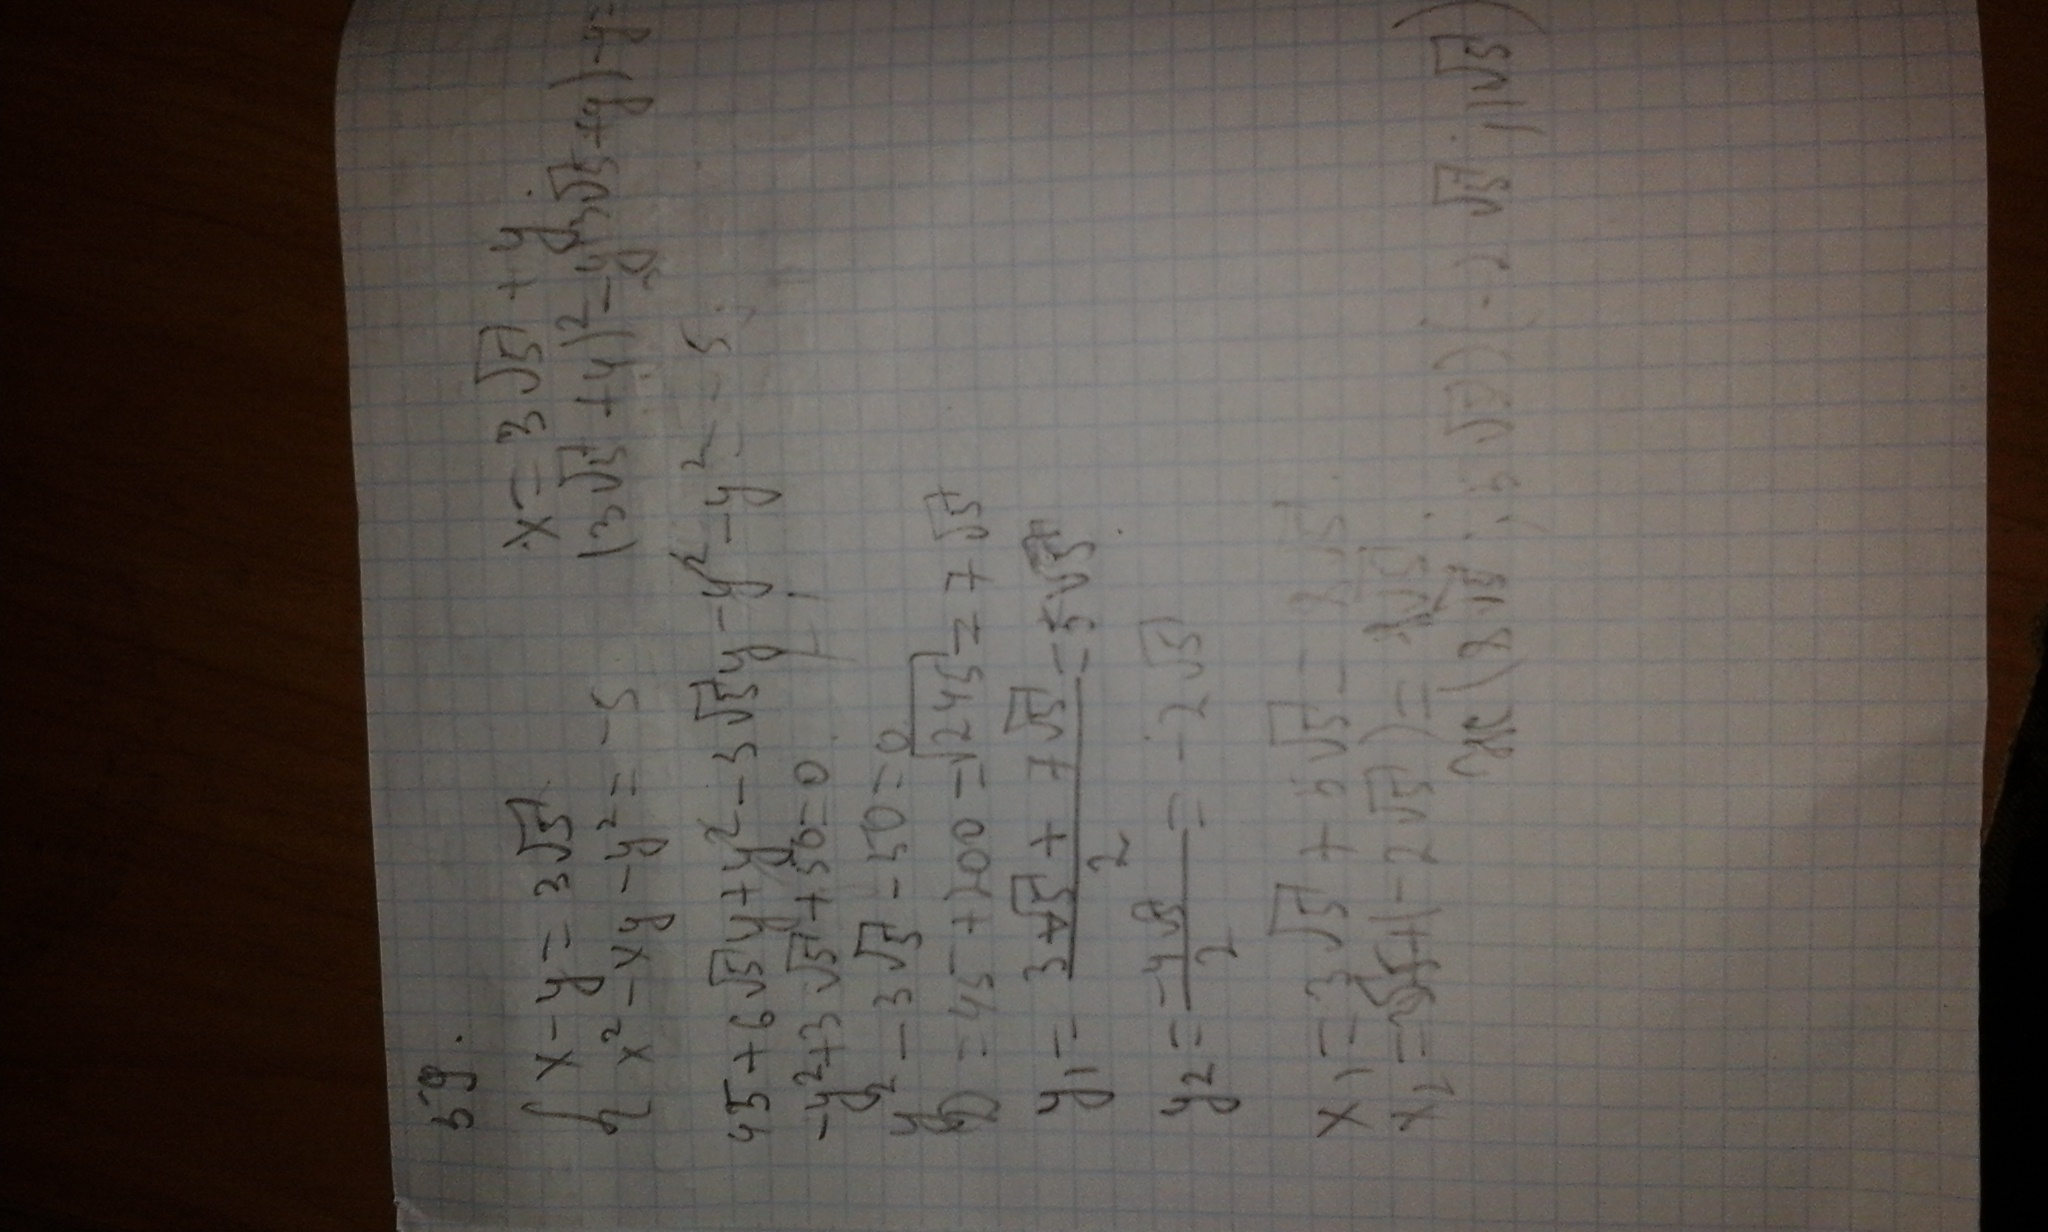 59.
x-y=3√5 x=3√5+y
x²-xy-y²=-5 (3√5+y)²-y(3√5+y)-y=
45+6√5y+y²-3√5y-y²-y²=-5;
-y²+3√5+50=0
y²-3√5-50=0
D=45+200=√245=7√5
y₁=3√5+7√5/2=5√5
y₂=-4√5/2=-2√5
x₁=3√5+5√5=8√5
+(-2√5)=
(8√5;5√5)(-2√5;